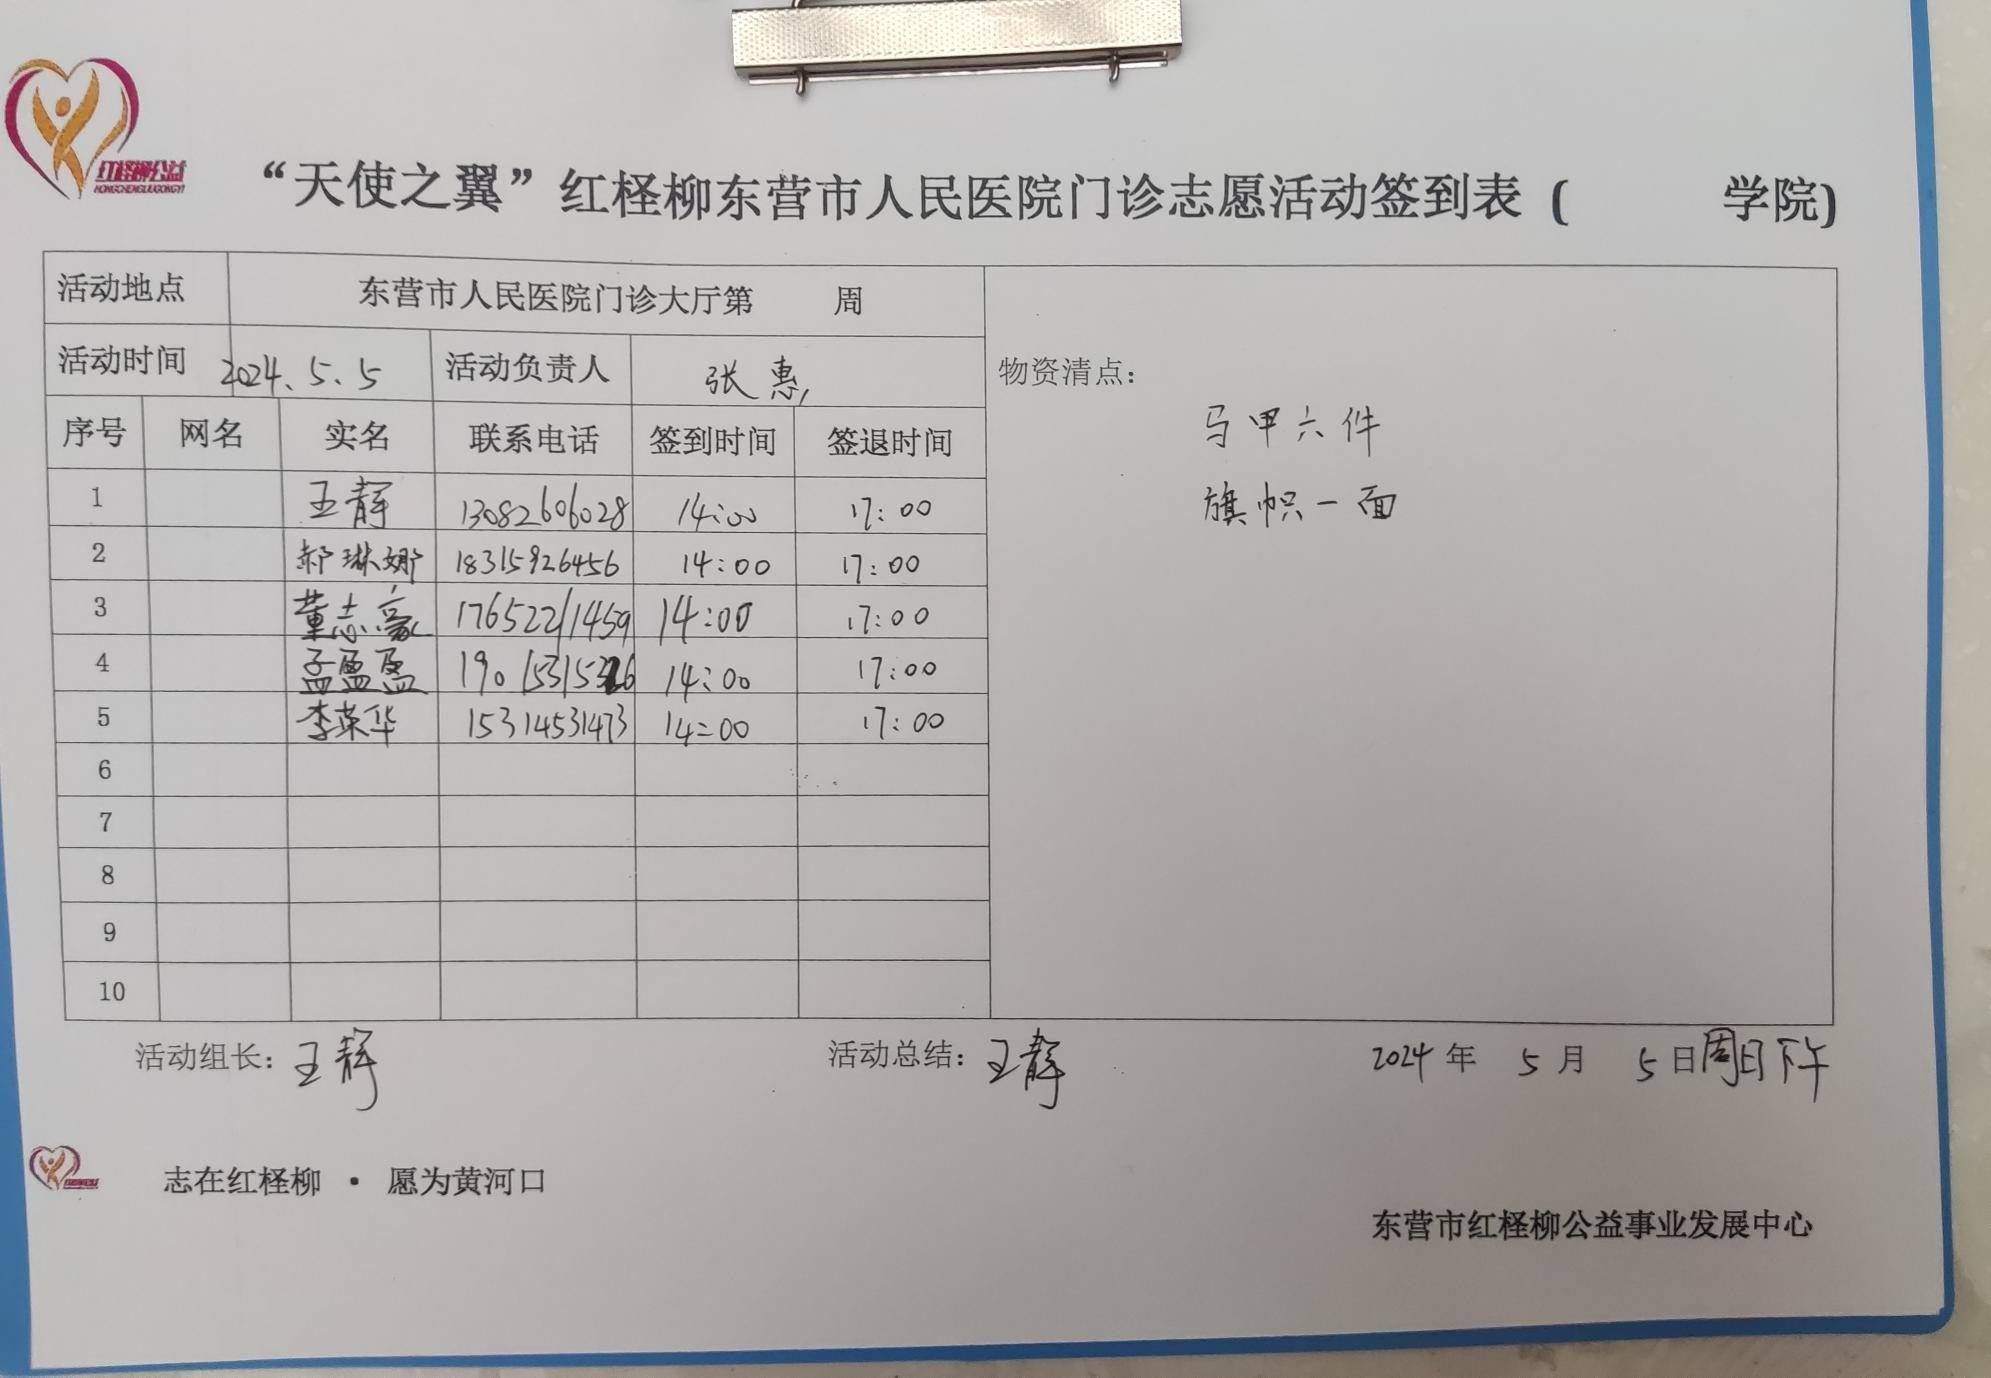 红柽柳公益
HONGCHENGLIUGONGYI
“天使之翼”红柽柳东营市人民医院门诊志愿活动签到表（ 学院)
活动地点 东营市人民医院门诊大厅第 周
活动时间 2024.5.5 活动负责人 张惠
物资清点：
马甲六件
旗帜一面
序号 网名 实名 联系电话 签到时间 签退时间
1 王静 13082606028 14:00 17:00
2 郝琳娜 18315926456 14:00 17:00
3 董志豪 17652211459 14:00 17:00
4 孟盈盈 14:00 17:00
5 李荣华 15314531473 14:00 17:00
6
7
8
9
10
活动组长：王静 活动总结：王静 2024年 5月 5日周日下午
志在红柽柳 · 愿为黄河口
东营市红柽柳公益事业发展中心